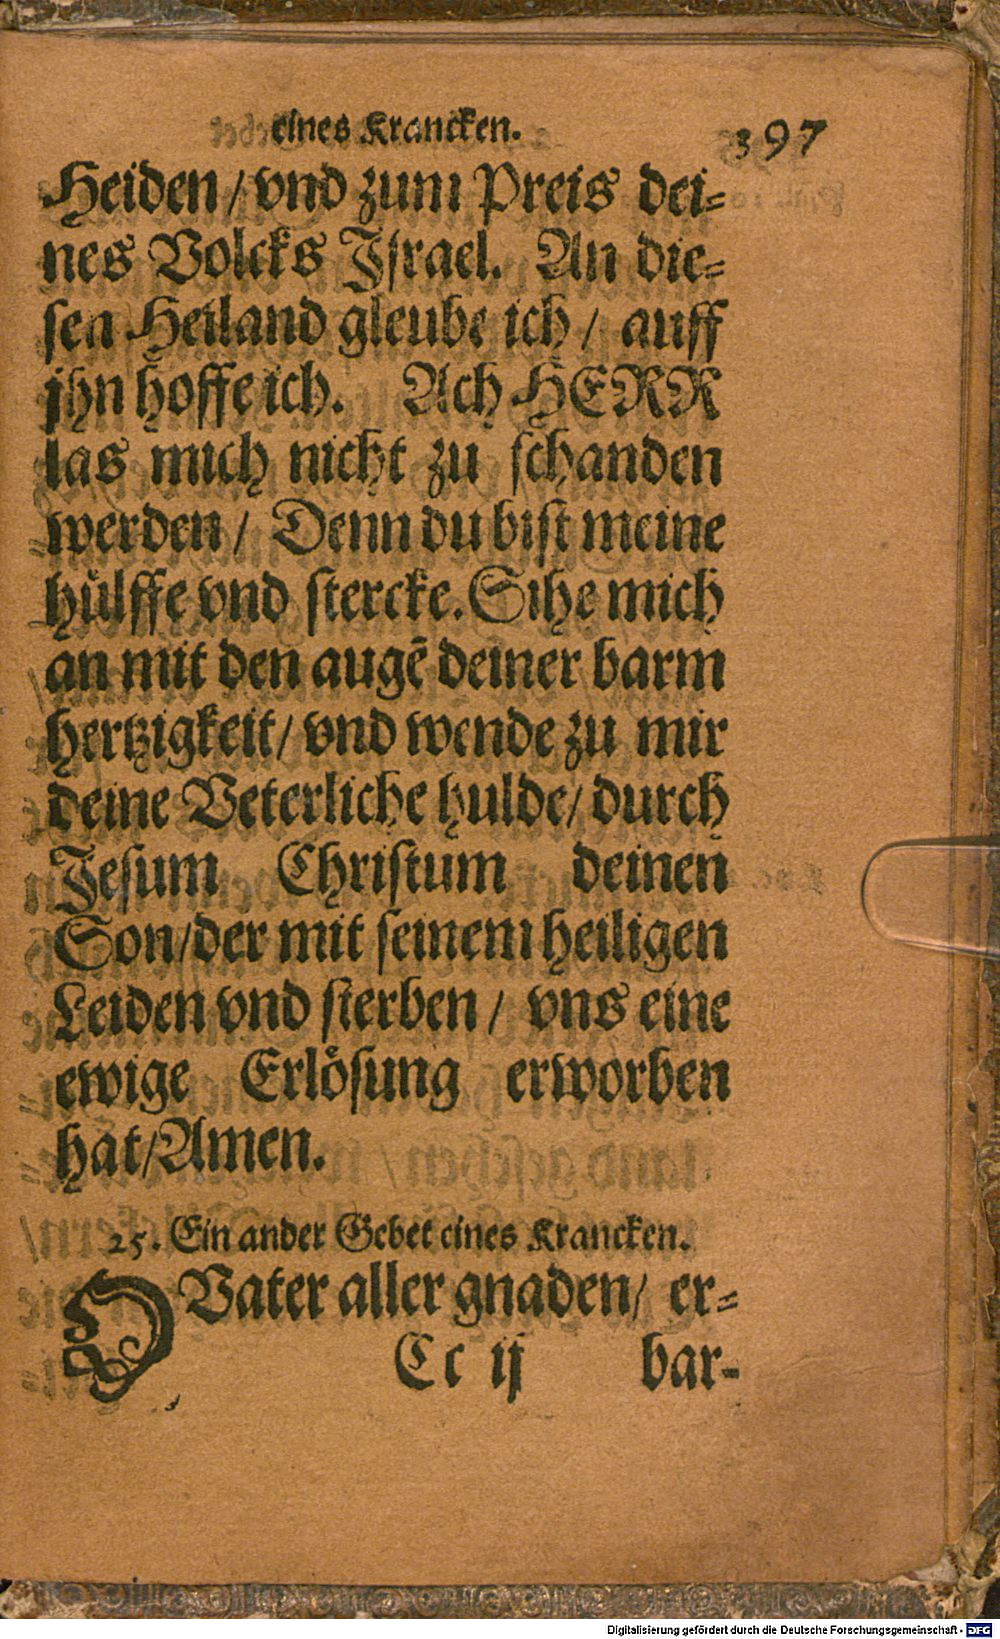 eines Krancken. 397
Heiden / vnd zum Preis dei-
nes Volcks Jsrael. An die-
sen Heiland gleube ich / auff
jhn hoffe ich. Ach HERR
las mich nicht zu schanden
werden / Denn du bist meine
hülffe vnd stercke. Sihe mich
an mit den augē deiner barm
hertzigkeit / vnd wende zu mir
deine Veterliche hulde / durch
Jesum Christum deinen
Son / der mit seinem heiligen
Leiden vnd sterben / vns eine
ewige Erlösung erworben
hat / Amen.
25. Ein ander Gebet eines Krancken.
O Vater aller gnaden / er-
Cc ij bar-
Digitalisierung gefördert durch die Deutsche Forschungsgemeinschaft - DFG